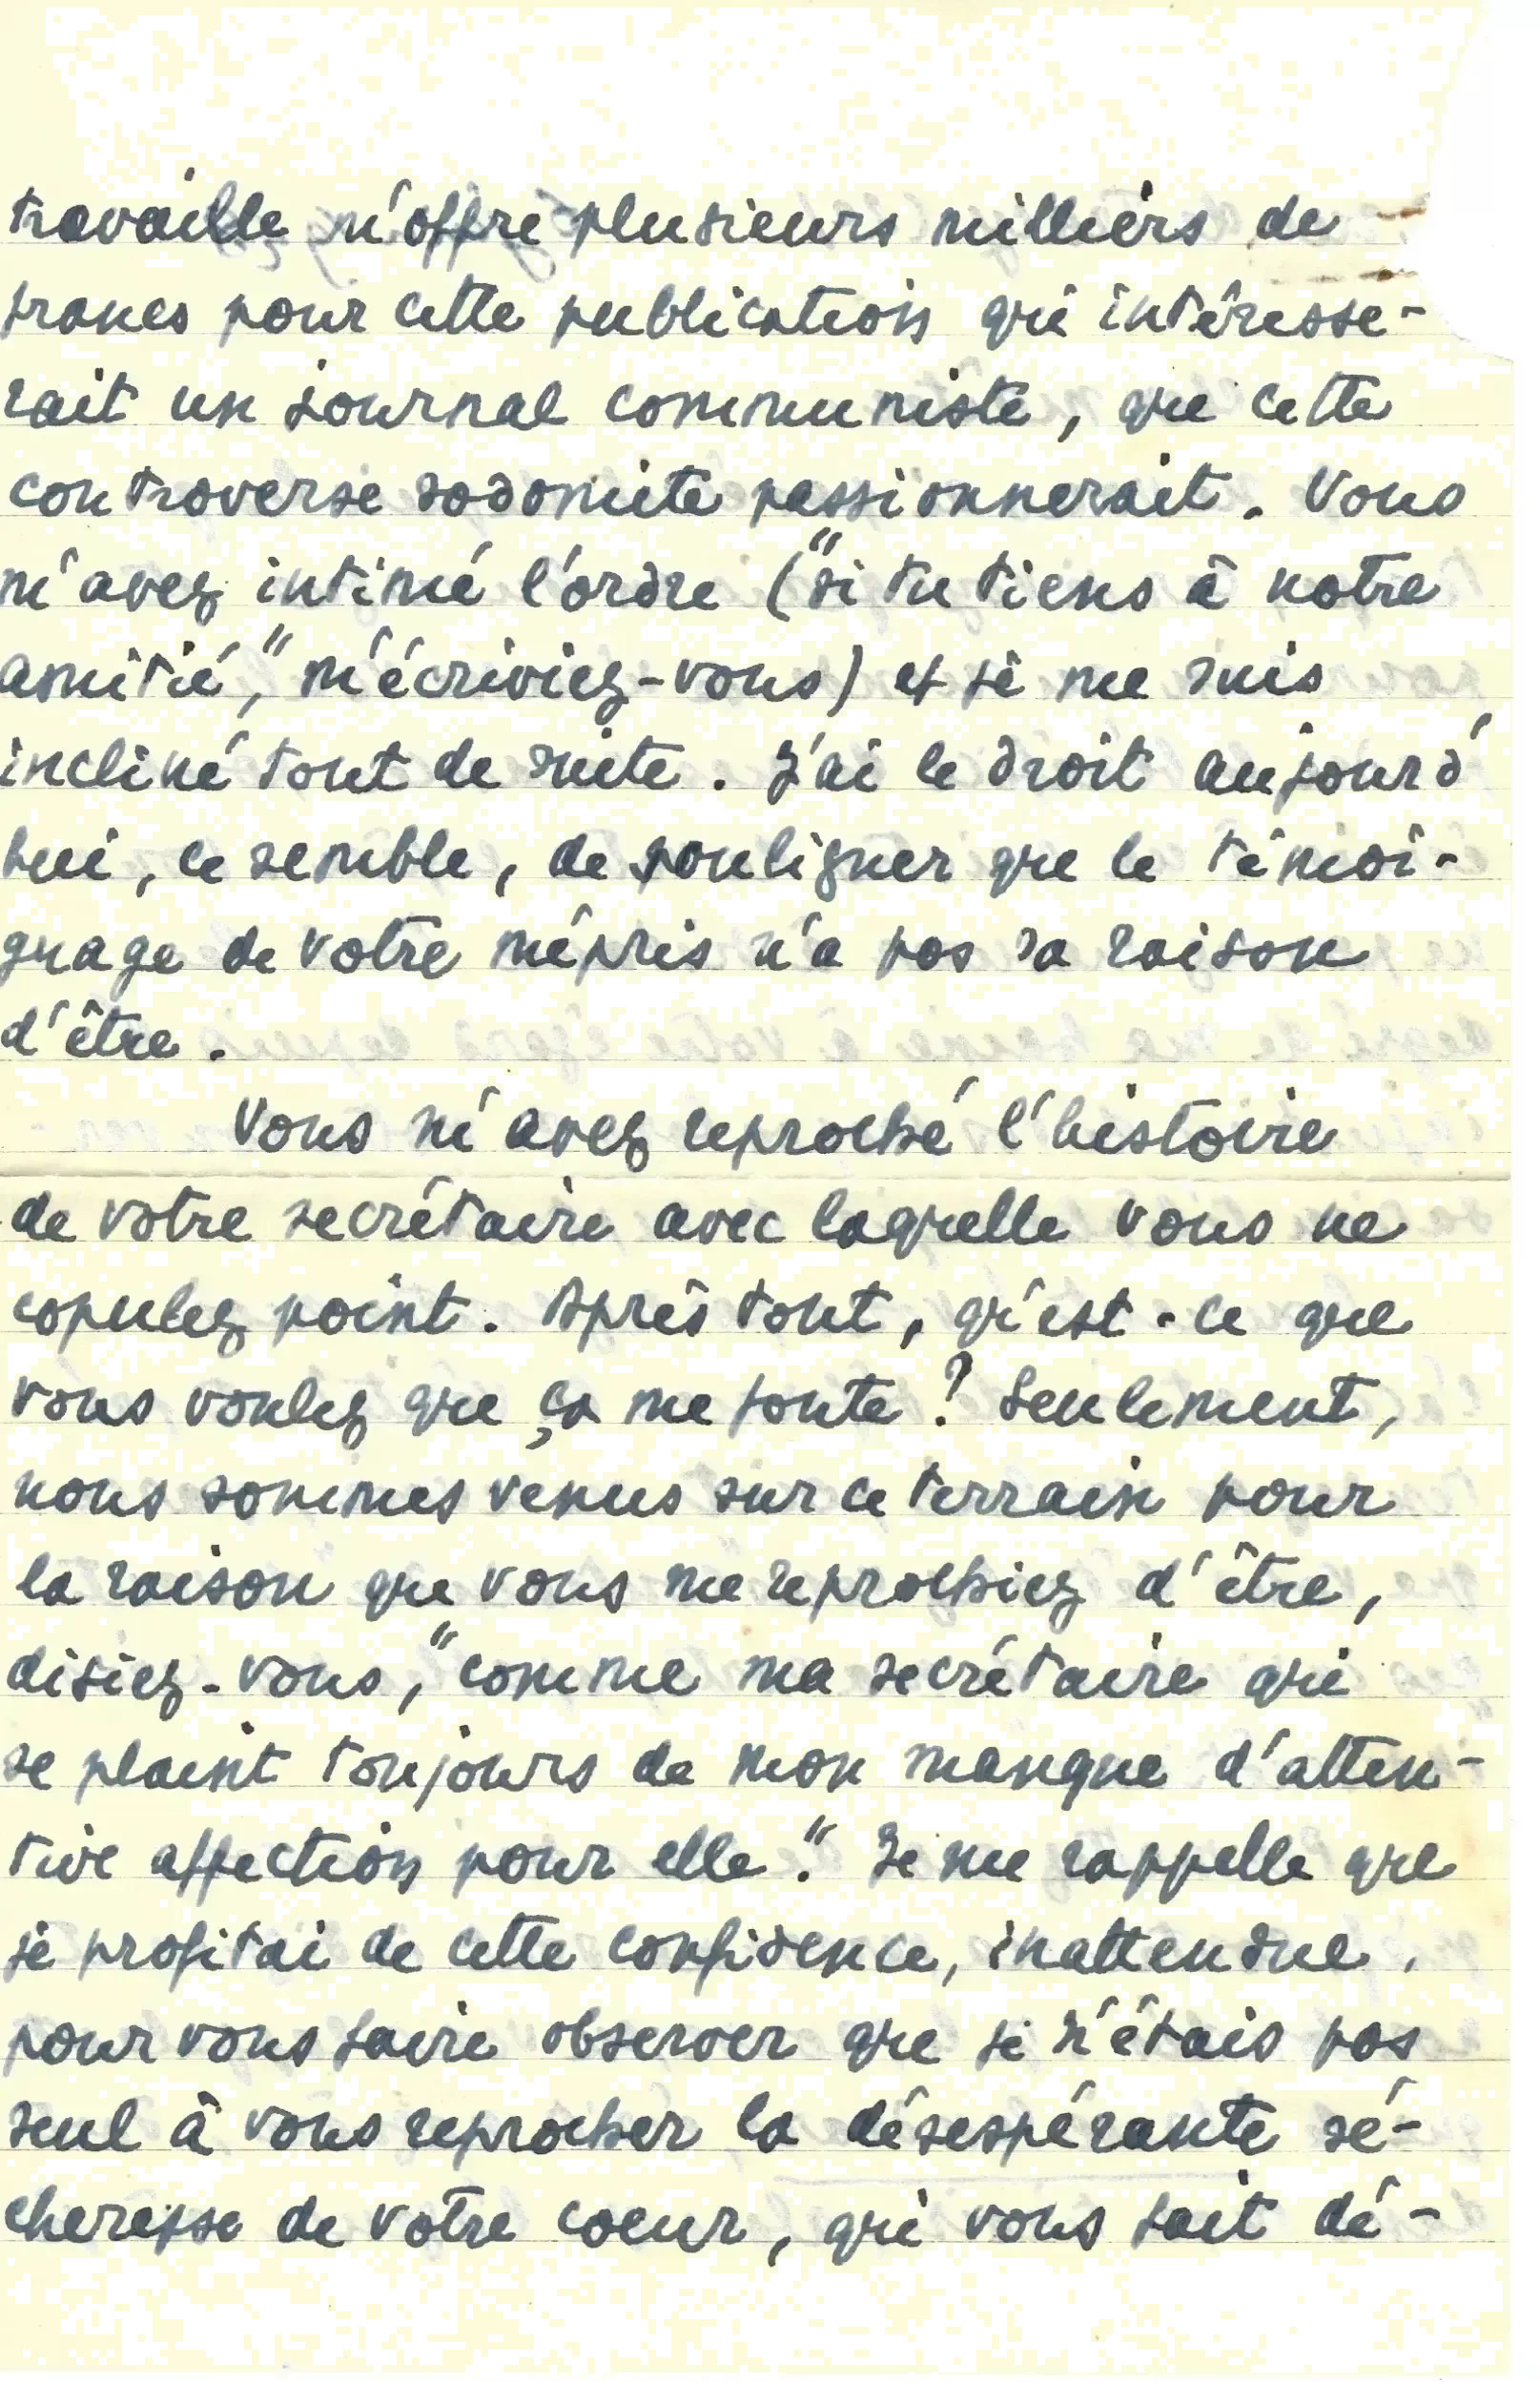 travaille m'offre plusieurs milliers de
francs pour cette publication qui intéresse-
rait un journal communiste, que cette
controverse sodomite passionnerait. Vous
m'avez intimé l'ordre ("si tu tiens à notre
amitié," m'écriviez-vous) et je me suis
incliné tout de suite. J'ai le droit aujourd'
hui, ce semble, de souligner que le témoi-
gnage de votre mépris n'a pas sa raison
d'être.
Vous m'avez reproché l'histoire
de votre secrétaire avec laquelle vous ne
copulez point. Après tout, qu'est-ce que
vous voulez que ça me foute? Seulement,
nous sommes venus sur ce terrain pour
la raison que vous me reprochiez d'être,
disiez-vous, "comme ma secrétaire qui
se plaint toujours de mon manque d'atten-
tive affection pour elle." Je me rappelle que
je profitai de cette confidence, inattendue,
pour vous faire observer que je n'étais pas
seul à vous reprocher la désespérante sé-
cheresse de votre coeur, qui vous fait dé-